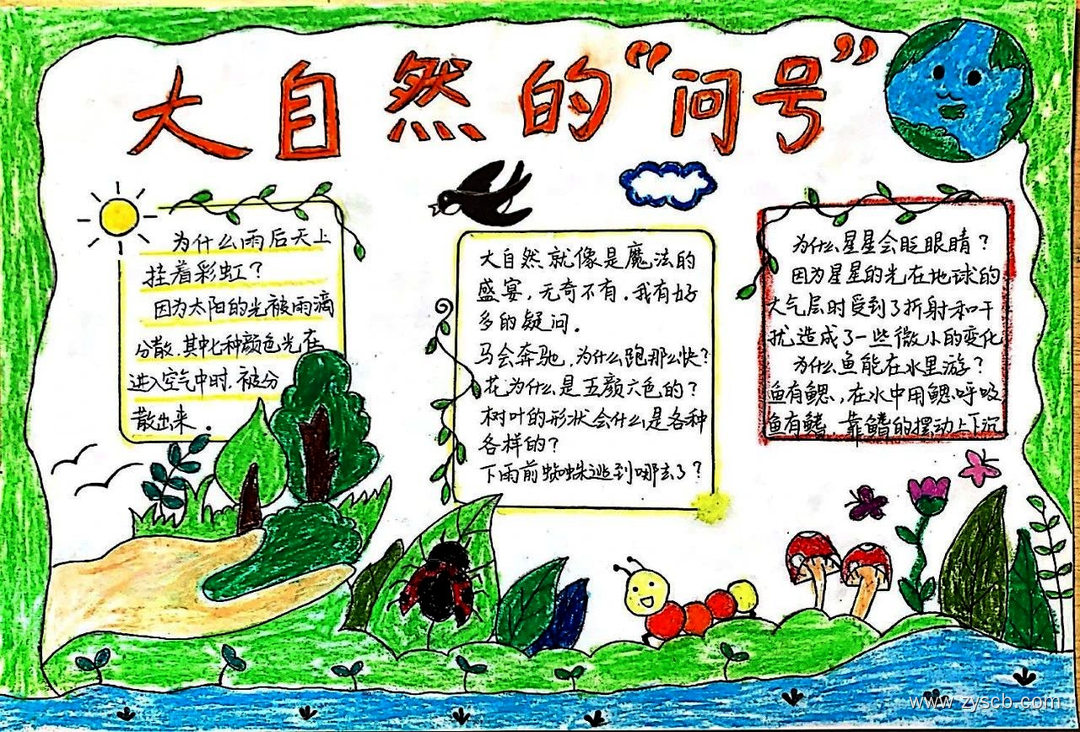 大自然的“问号”
为什么雨后天上
挂着彩虹?
因为太阳的光被雨滴
分散,其中七种颜色光在
进入空气中时,被分
散出来。
大自然就像是魔法的
盛宴,无奇不有,我有好
多的疑问。
马会奔驰,为什么跑那么快?
花为什么是五颜六色的?
树叶的形状会什么是各种
各样的?
下雨前蜘蛛逃到哪去了?
为什么星星会眨眼睛?
因为星星的光在地球的
大气层时受到了折射和干
扰造成了一些微小的变化
为什么鱼能在水里游?
鱼有鳃,在水中用鳃呼吸
鱼有鳍,靠鳍的摆动上下沉
www.zyscb.com